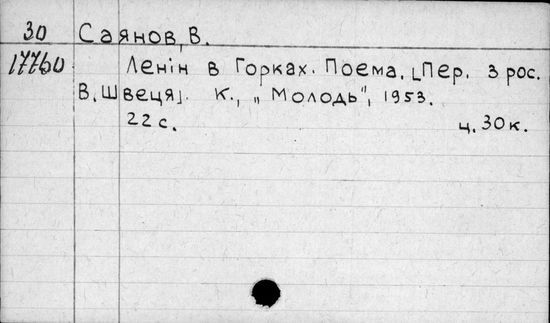 30 Саянов, В.
17760 Ленін в Горках. Поема. [Пер. з рос.
В. Швеця]. К., „Молодь", 1953.
22 с. ц. 30 к.